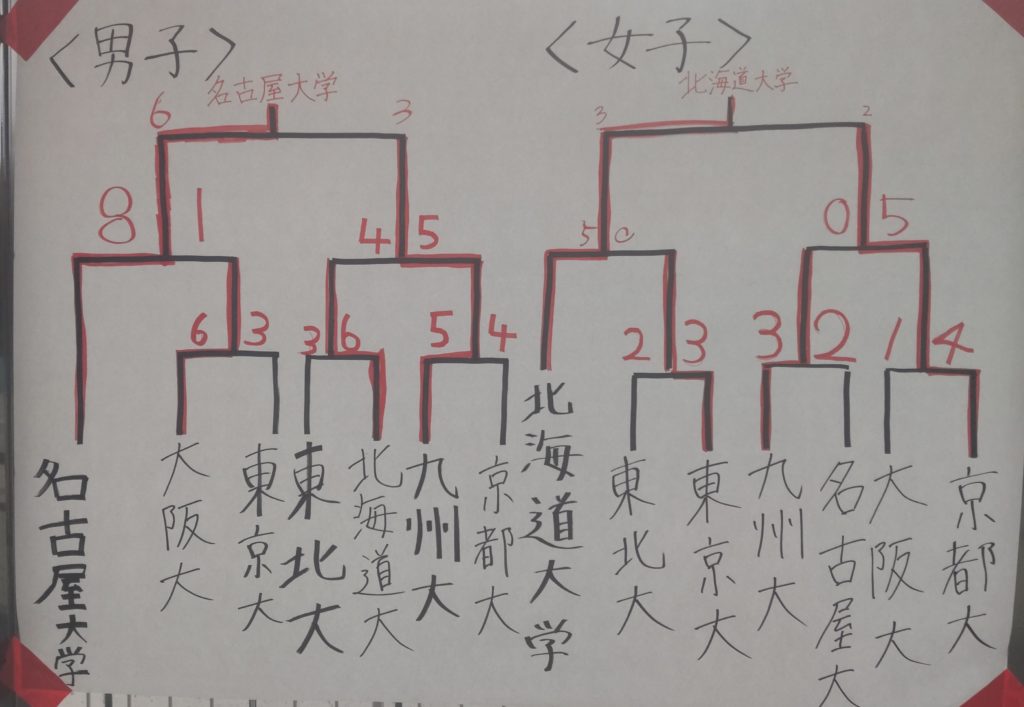 〈男子〉
〈女子〉
名古屋大学
北海道大学
6 3
3 2
8 1
4 5
5 0
0 5
6 3
3 6
5 4
2 3
3 2
1 4
名古屋大学
大阪大
東京大
東北大
北海道大
九州大
京都大
北海道大学
東北大
東京大
九州大
名古屋大
大阪大
京都大